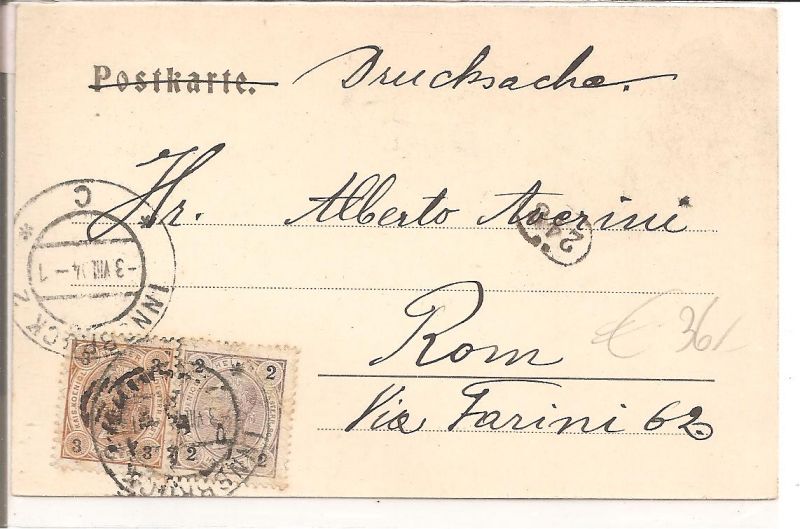 Postkarte. Drucksache.
Hr. Alberto Averini
Rom
Via Farini 62
€ 36/
248
INNSBRUCK 2
* C *
-3 VIII 04-1
3 3
2 2 2 2
INNSBRUCK